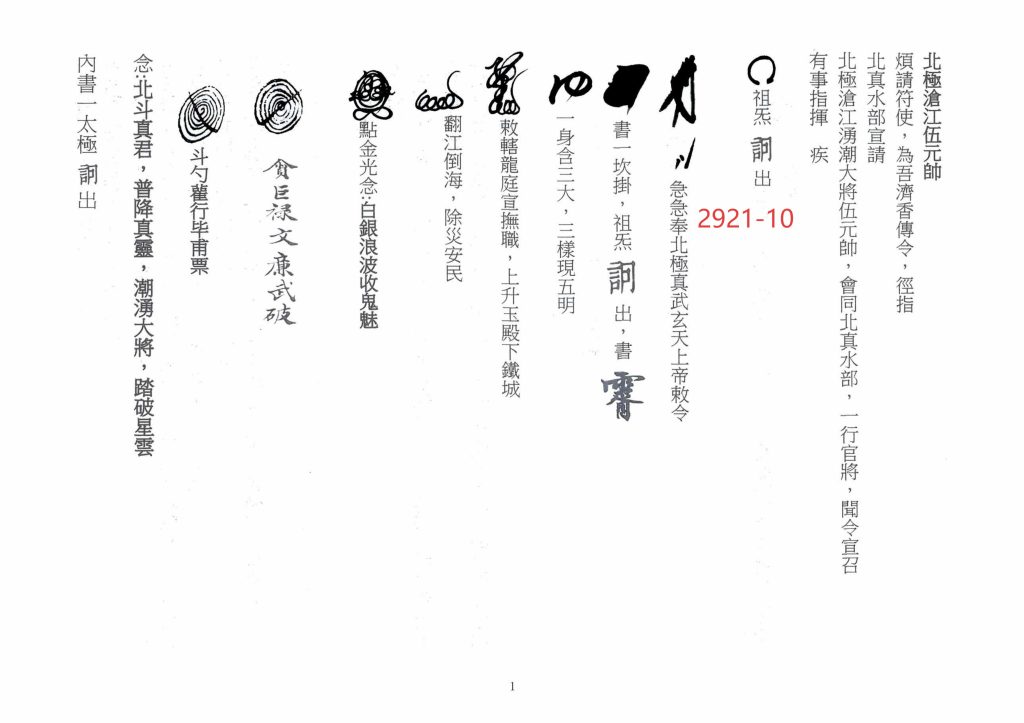 北極滄江伍元帥
煩請符使，為吾濟香傳令，徑指
北真水部宣請
北極滄江湧潮大將伍元帥，會同北真水部，一行官將，聞令宣召
有事指揮　疾
祖炁 出
2921-10
急急奉北極真武玄天上帝敕令
書一坎掛，祖炁 出，書
一身含三大，三樣現五明
敕轄龍庭宣撫職，上升玉殿下鐵城
翻江倒海，除災安民
點金光念：白銀浪波收鬼魅
貪巨祿文廉武破
斗勺雚行毕甫票
念：北斗真君，普降真靈，潮湧大將，踏破星雲
內書一太極 出
1